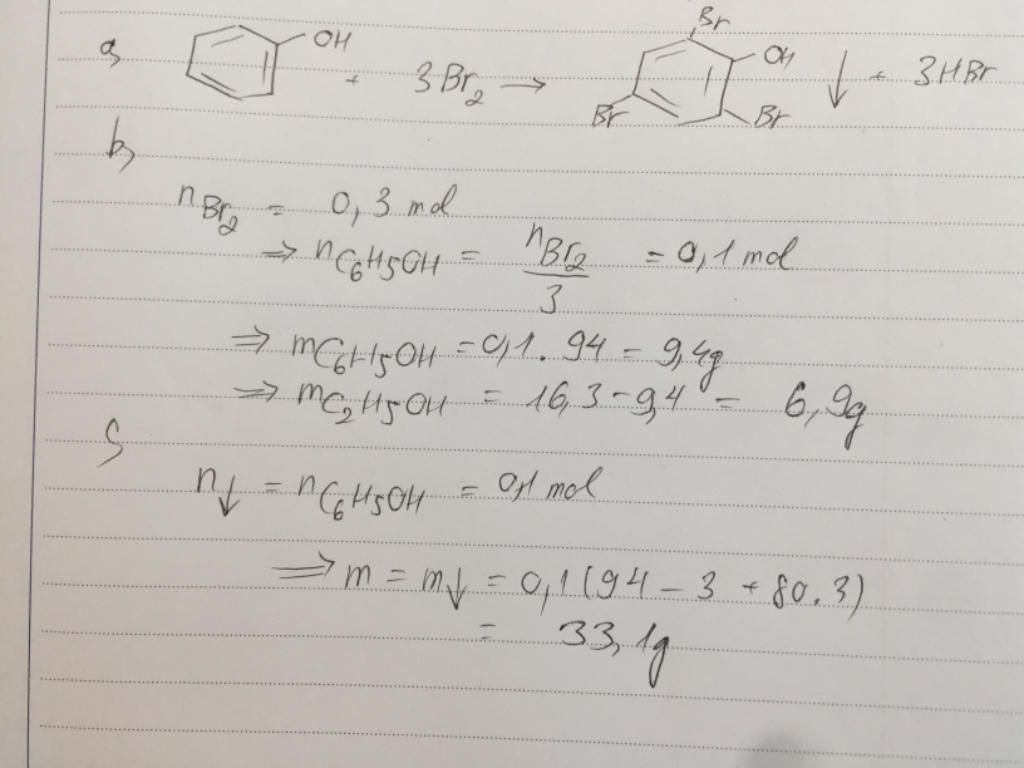 a, OH + 3Br2 → Br OH Br Br ↓ + 3HBr
b,
nBr2 = 0,3 mol
⇒ nC6H5OH = nBr2/3 = 0,1 mol
⇒ mC6H5OH = 0,1 . 94 = 9,4g
⇒ mC2H5OH = 16,3 - 9,4 = 6,9g
c,
n↓ = nC6H5OH = 0,1 mol
⇒ m = m↓ = 0,1(94 - 3 + 80.3)
= 33,1g